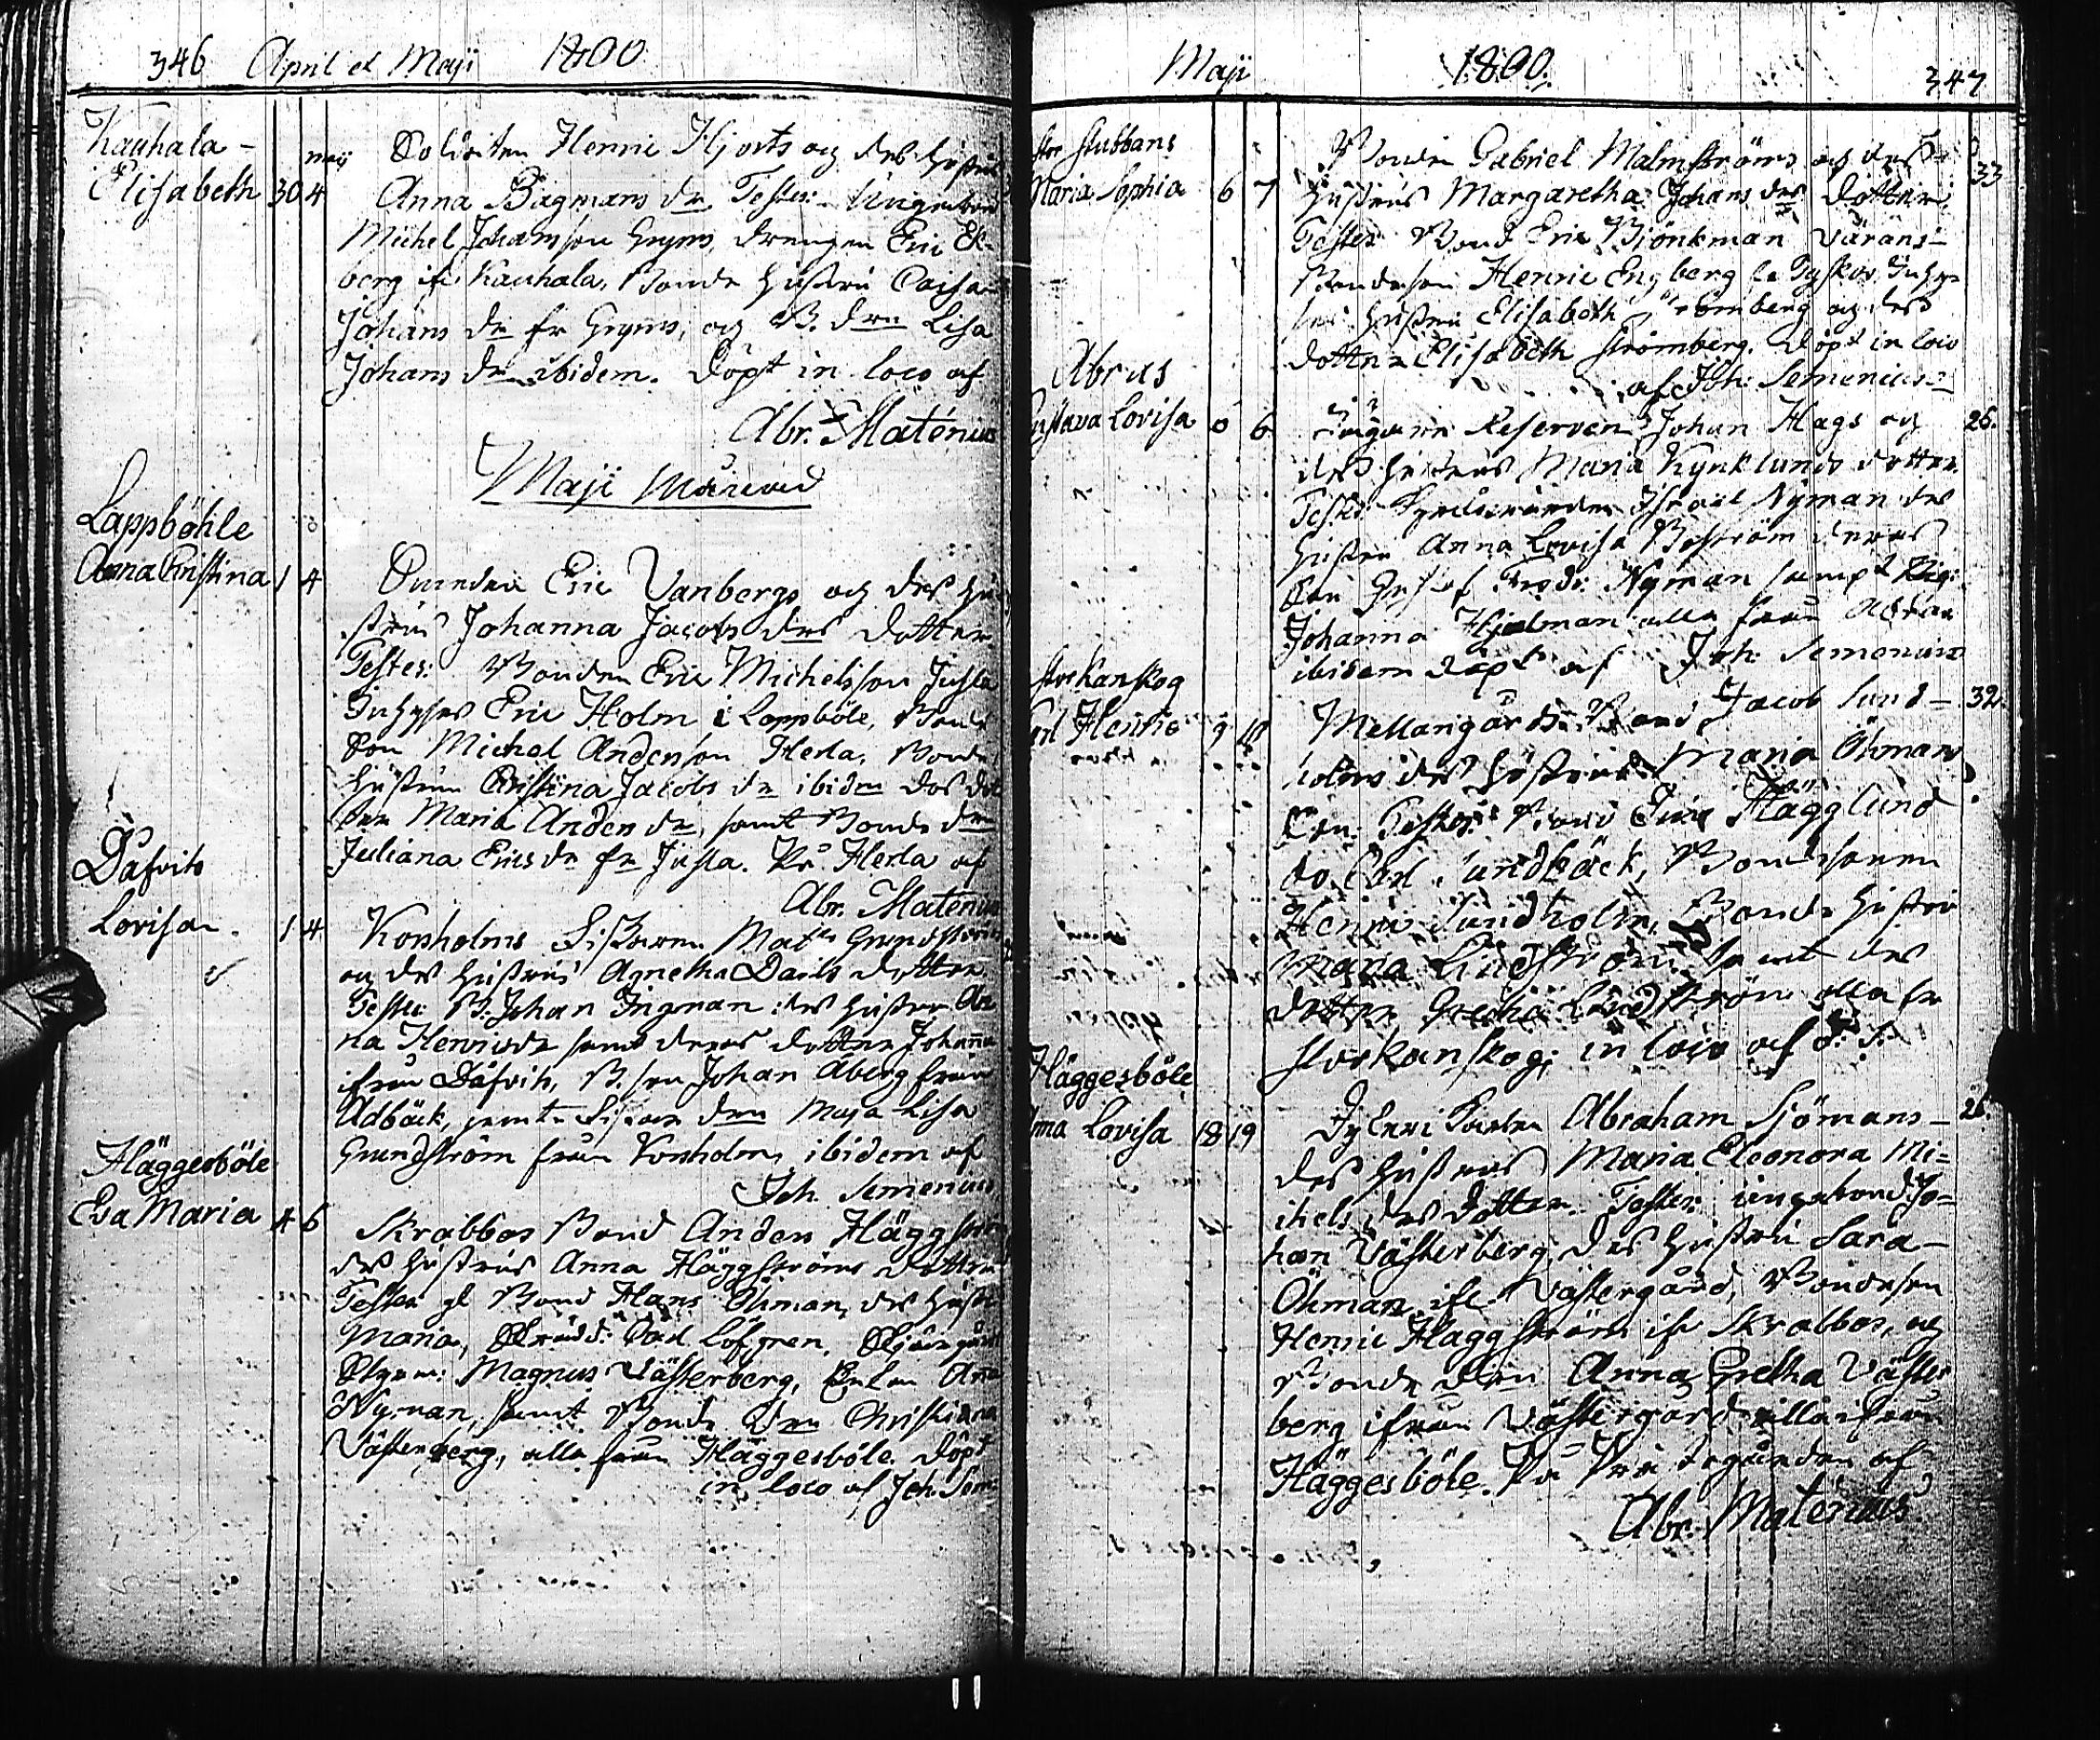 346 April et Maji 1800
Kauhala -
Elisabeth 30 4
maij Soldaten Henric Hjorts og des Hustrus
Anna Bagmans dr Testes: Ungerbond
Michel Johansson Gryms, drengen Eric Ek-
berg ifr Kauhala, Bonde Hustru Caisa
Johans dr fr Gryms, og B. drn Lisa
Johans dr ibidem. Döpt in loco af
Abr. Matenius
Maji Månad
Lappböhle
Anna Christina 1 4
Eric Vanbergs og des Hu-
strus Johanna Jacobs drs dotter
Testes: Bonden Eric Michelsson Jusla
Inhyses Eric Holm i Lappböle, Bonde
Son Michel Andersson Herla, Bonde
Hustrun Christina Jacobs dr ibidem des dot
ter Maria Anders dr, samt Bonde drn
Juliana Erics dr fr Jusla. På Herla af
Abr. Matenius
Dåfvits
Lovisa. 1 4
Korsholms Matts Grundström
og des Hustrus Agnetha Davids dotter
Testes B. Johan Ingman des Hustru An
na Henricsdr samt deras dotter Johanna
ifrån Dåfvits, B. son Johan Åberg från
Adbäck, jemte drn Maja Lisa
Grundström från Korsholms ibidem af
Joh. Semenius
Häggesböle
Eva Maria 4 6
Skrabbas Bond Anders Häggström
des Hustrus Anna Häggströms dotter
Testes gl Bond Hans Öhman, des Hustru
Maria, Carl Löfgren,
Magnus Västerberg, Enkan Anna
Nyman, samt Bonde drn Christina
Västerberg, alla från Häggesböle. Döpt
in loco af Joh. Sem:
Maji 1800. 347
Stor Stubbans
Maria Sophia 6 7
Bonden Gabriel Malmströms og des 33
Hustrus Margaretha Johans drs dotter
Testes Bond Eric Björkman
Bondeson Henric Engberg Tyskos Inhy-
ses Hustru Elisabeth Strömberg og des
dotter Elisabeth Strömberg. Döpt in loco
af Joh: Semenius
Abras
Gustava Lovisa 6
Reserven Johan Hags og 26.
des Hustrus Maria Kynklunds dotter
Testes: Israel Nyman des
Hustru Anna Lovisa Boström deras
Son Fredr: Nyman samt Pig:
Johanna Hjelman alla från Abras
ibidem döpt af Joh. Semenius
Storkanskog
Carl Henric 9 10
Mellangårds Bond Jacob Sund- 32
holms des Hustrus Maria Öhmans
Son. Testes: Bond Eric Hägglund
do Carl Sundbäck, Bondesonen
Henric Sundholm, Bonde Hustru
Maria Lindström samt des
dotter Gretha Lindström alla fr
Storkanskog; in loco af d: s:
Häggesböle
Anna Lovisa 18 19
Abraham Sjömans - 26.
des Hustrus Maria Eleonora Mi-
chels drs dotter. Testes: ungebond Jo-
han Västerberg, des Hustru Sara -
Öhman ifr Västergård, Bondeson
Henric Häggström ifr Skrabbas, og
Bonde drn Anna Gretha Väster
berg ifrån Västergård alla ifrån
Häggesböle. På af
Abr. Matenius